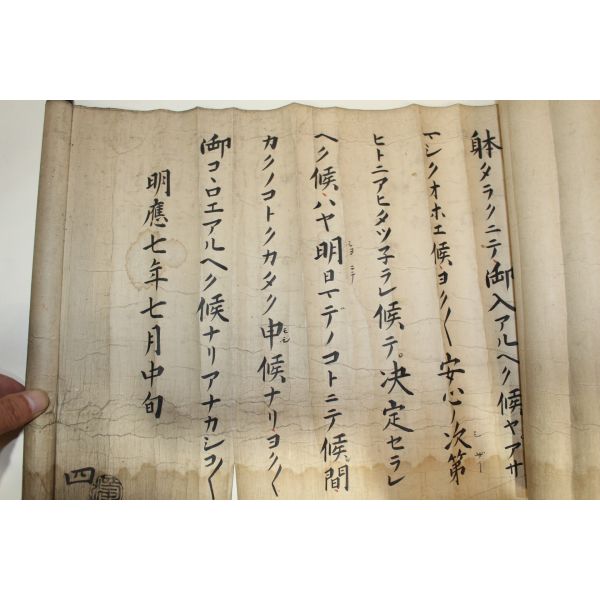 躰タラクニテ御入アルヘク候ヤアサ
マシクオホエ候ヨク〱安心ノ次第
ヒトニアヒタツ子ラレ候テ。決定セラレ
ヘク候ハヤ明日マデノコトニテ候間
カクノコトクカタク申候ナリヨク〱
御コヽロエアルヘク候ナリアナカシコ〱
明應七年七月中旬
四